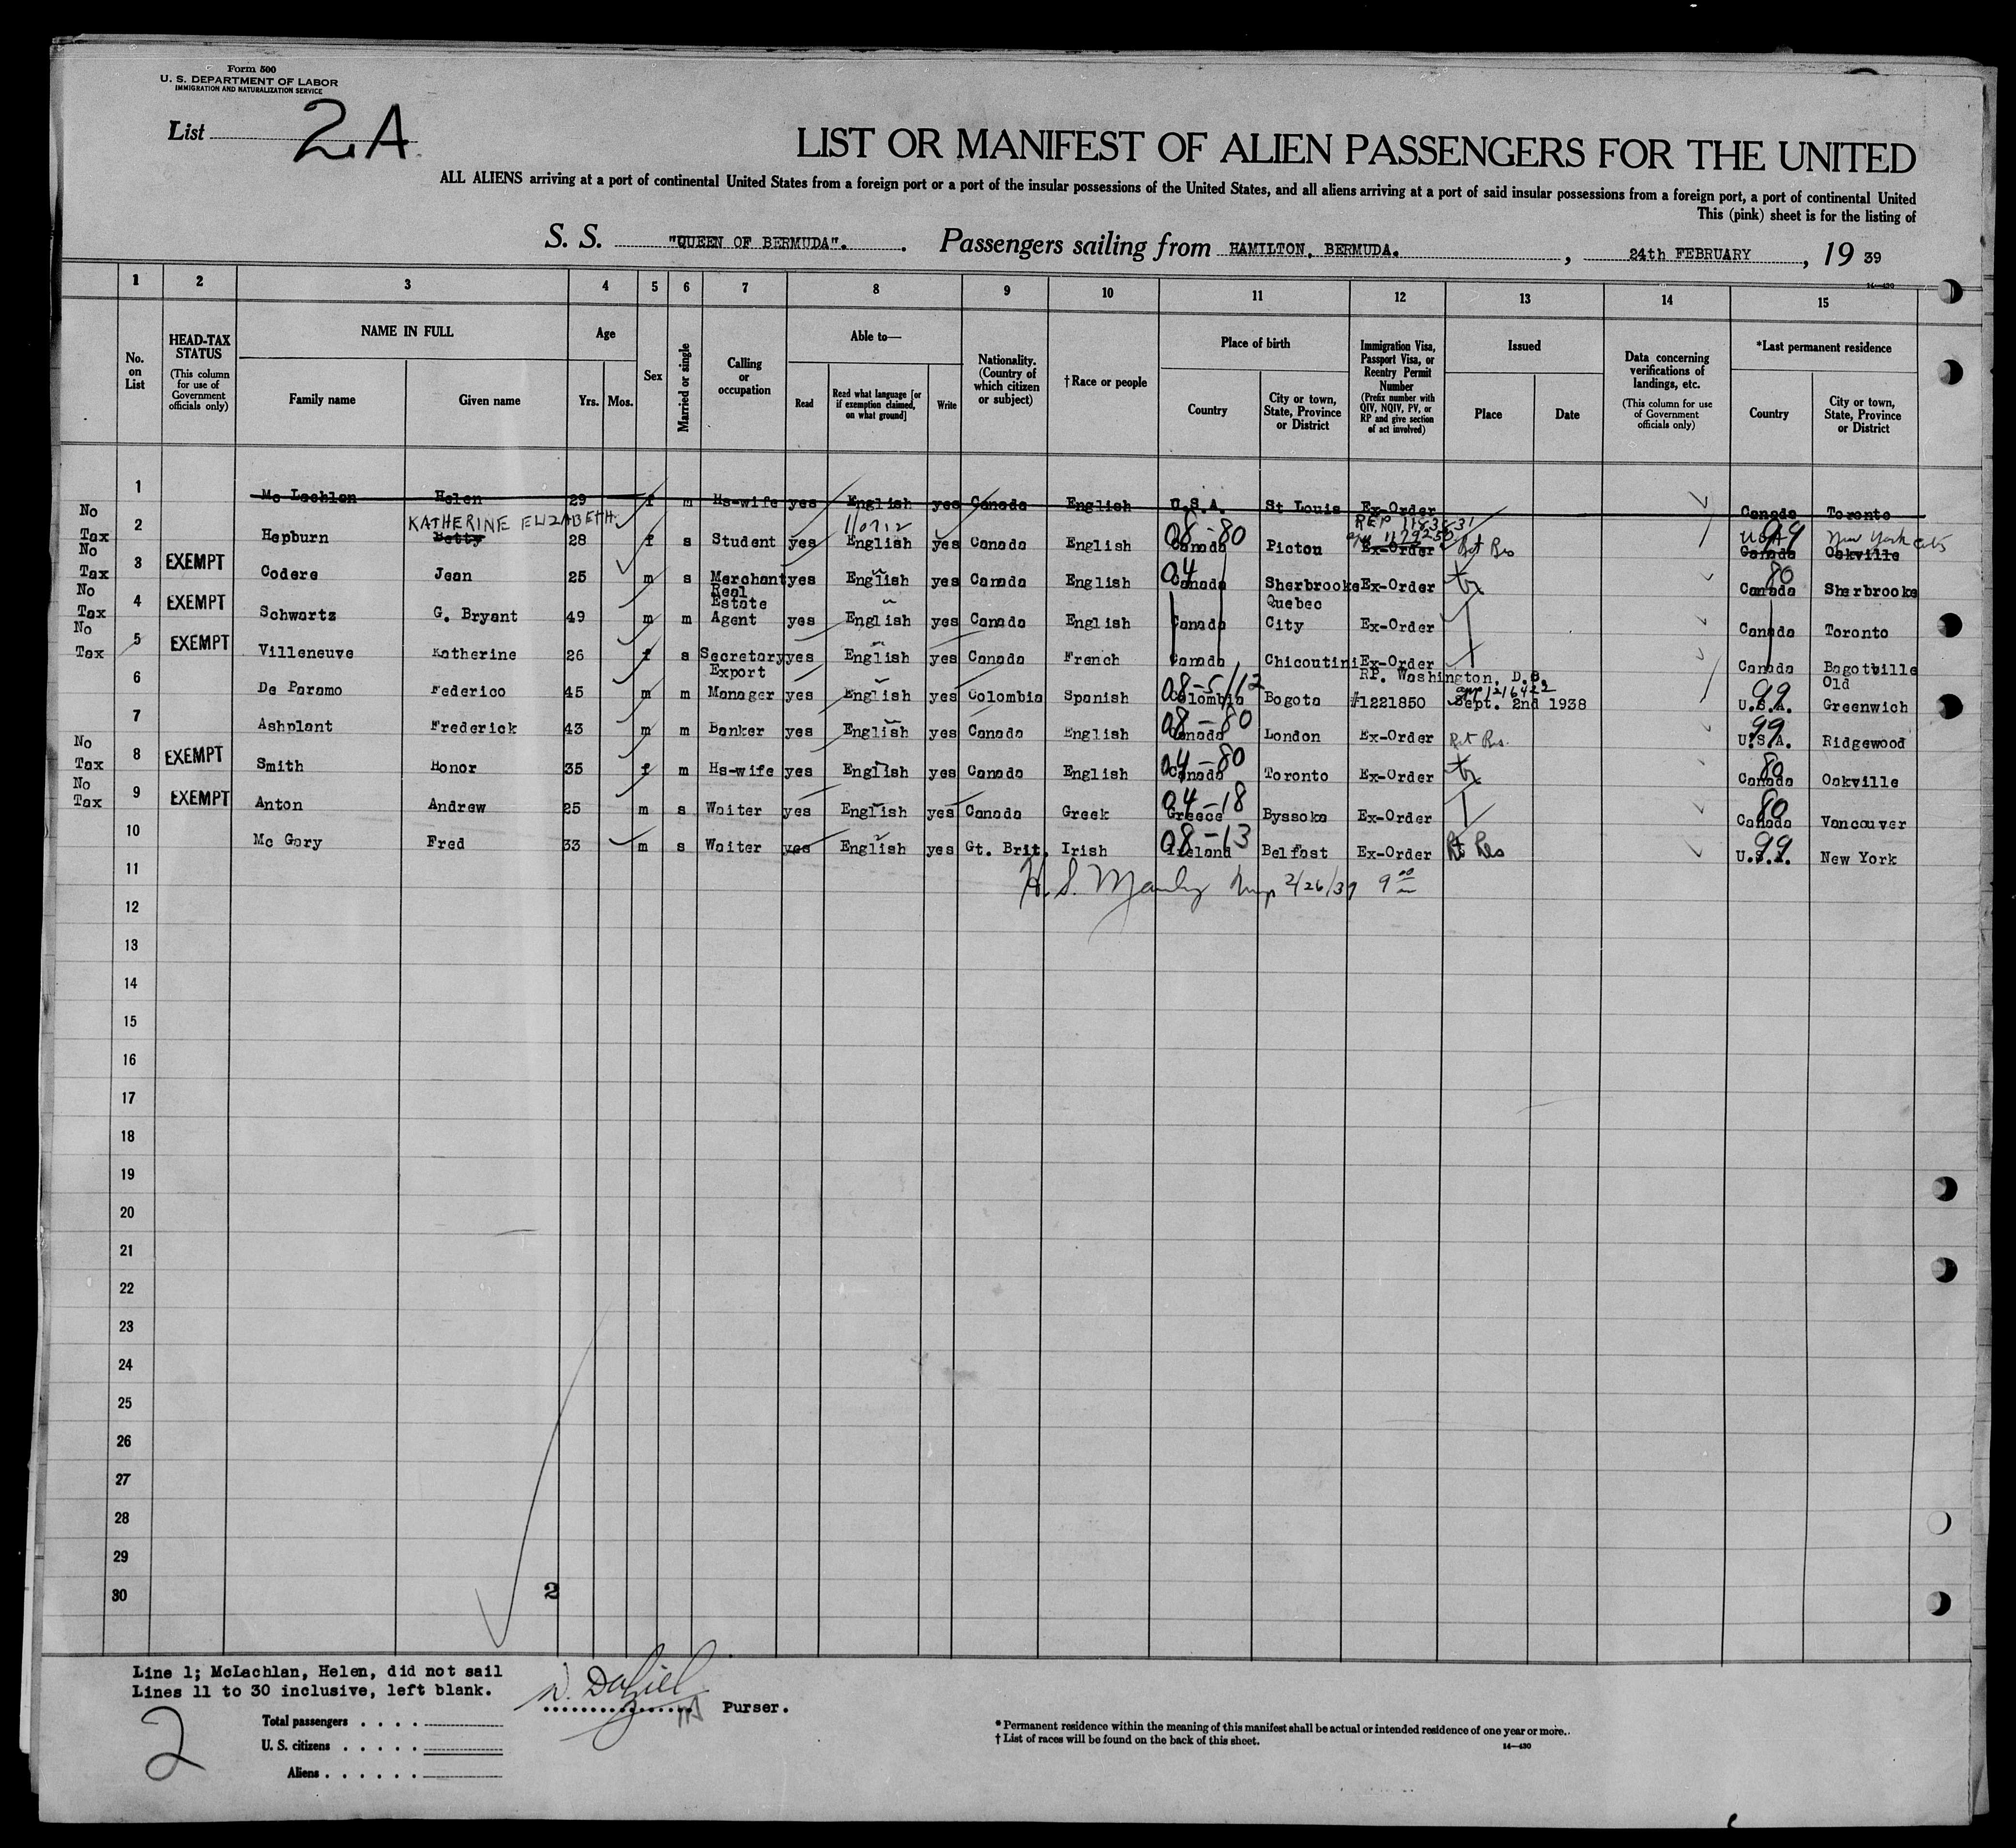 Form 500
U. S. DEPARTMENT OF LABOR
IMMIGRATION AND NATURALIZATION SERVICE
List 2A
LIST OR MANIFEST OF ALIEN PASSENGERS FOR THE UNITED
ALL ALIENS arriving at a port of continental United States from a foreign port or a port of the insular possessions of the United States, and all aliens arriving at a port of said insular possessions from a foreign port, a port of continental United
This (pink) sheet is for the listing of
S. S. "QUEEN OF BERMUDA". Passengers sailing from HAMILTON, BERMUDA. , 24th FEBRUARY , 19 39
14-430
1 2 3 4 5 6 7 8 9 10 11 12 13 14 15
No. on List
HEAD-TAX STATUS (This column for use of Government officials only)
NAME IN FULL
Family name Given name
Age
Yrs. Mos.
Sex
Married or single
Calling or occupation
Able to—
Read
Read what language [or if exemption claimed, on what ground]
Write
Nationality. (Country of which citizen or subject)
†Race or people
Place of birth
Country
City or town, State, Province or District
Immigration Visa, Passport Visa, or Reentry Permit Number (Prefix number with QIV, NQIV, PV, or RP and give section of act involved)
Issued
Place Date
Data concerning verifications of landings, etc. (This column for use of Government officials only)
*Last permanent residence
Country
City or town, State, Province or District
1 Mc Lachlan Helen 29 f m Hs-wife yes English yes Canada English U.S.A. St Louis Ex-Order Canada Toronto
KATHERINE ELIZABETH 110712 REP 1183831 USA New York City
No Tax 2 Hepburn Betty 28 f s Student yes English yes Canada English 08-80 Canada Picton 1179250 Ex-Order Ret Res 99 Canada Oakville
No Tax 3 EXEMPT Codere Jean 25 m s Merchant yes English yes Canada English 04 Canada Sherbrooke Ex-Order tr 80 Canada Sherbrooke
No Tax 4 EXEMPT Schwartz G. Bryant 49 m m Real Estate Agent yes English yes Canada English Canada Quebec City Ex-Order Canada Toronto
No Tax 5 EXEMPT Villeneuve Katherine 26 f s Secretary yes English yes Canada French Canada Chicoutini Ex-Order Canada Bagotville
6 De Paramo Federico 45 m m Export Manager yes English yes Colombia Spanish 08-5/12 Colombia Bogota RP. Washington, D.C. #1221850 app 1216422 Sept. 2nd 1938 99 U.S.A. Old Greenwich
7 Ashplant Frederick 43 m m Banker yes English yes Canada English 08-80 Canada London Ex-Order Ret Res. 99 U.S.A. Ridgewood
No Tax 8 EXEMPT Smith Honor 35 f m Hs-wife yes English yes Canada English 04-80 Canada Toronto Ex-Order tr 80 Canada Oakville
No Tax 9 EXEMPT Anton Andrew 25 m s Waiter yes English yes Canada Greek 04-18 Greece Byssoka Ex-Order 80 Canada Vancouver
10 Mc Gary Fred 33 m s Waiter yes English yes Gt. Brit. Irish 08-13 Ireland Belfast Ex-Order Rt Res 99 U.S.A. New York
11 H. S. Manly Insp 2/26/39 9 00
12
13
14
15
16
17
18
19
20
21
22
23
24
25
26
27
28
29
30
2
Line 1; McLachlan, Helen, did not sail
Lines 11 to 30 inclusive, left blank.
Purser.
2
Total passengers
U. S. citizens
Aliens
* Permanent residence within the meaning of this manifest shall be actual or intended residence of one year or more.
† List of races will be found on the back of this sheet.
14-430